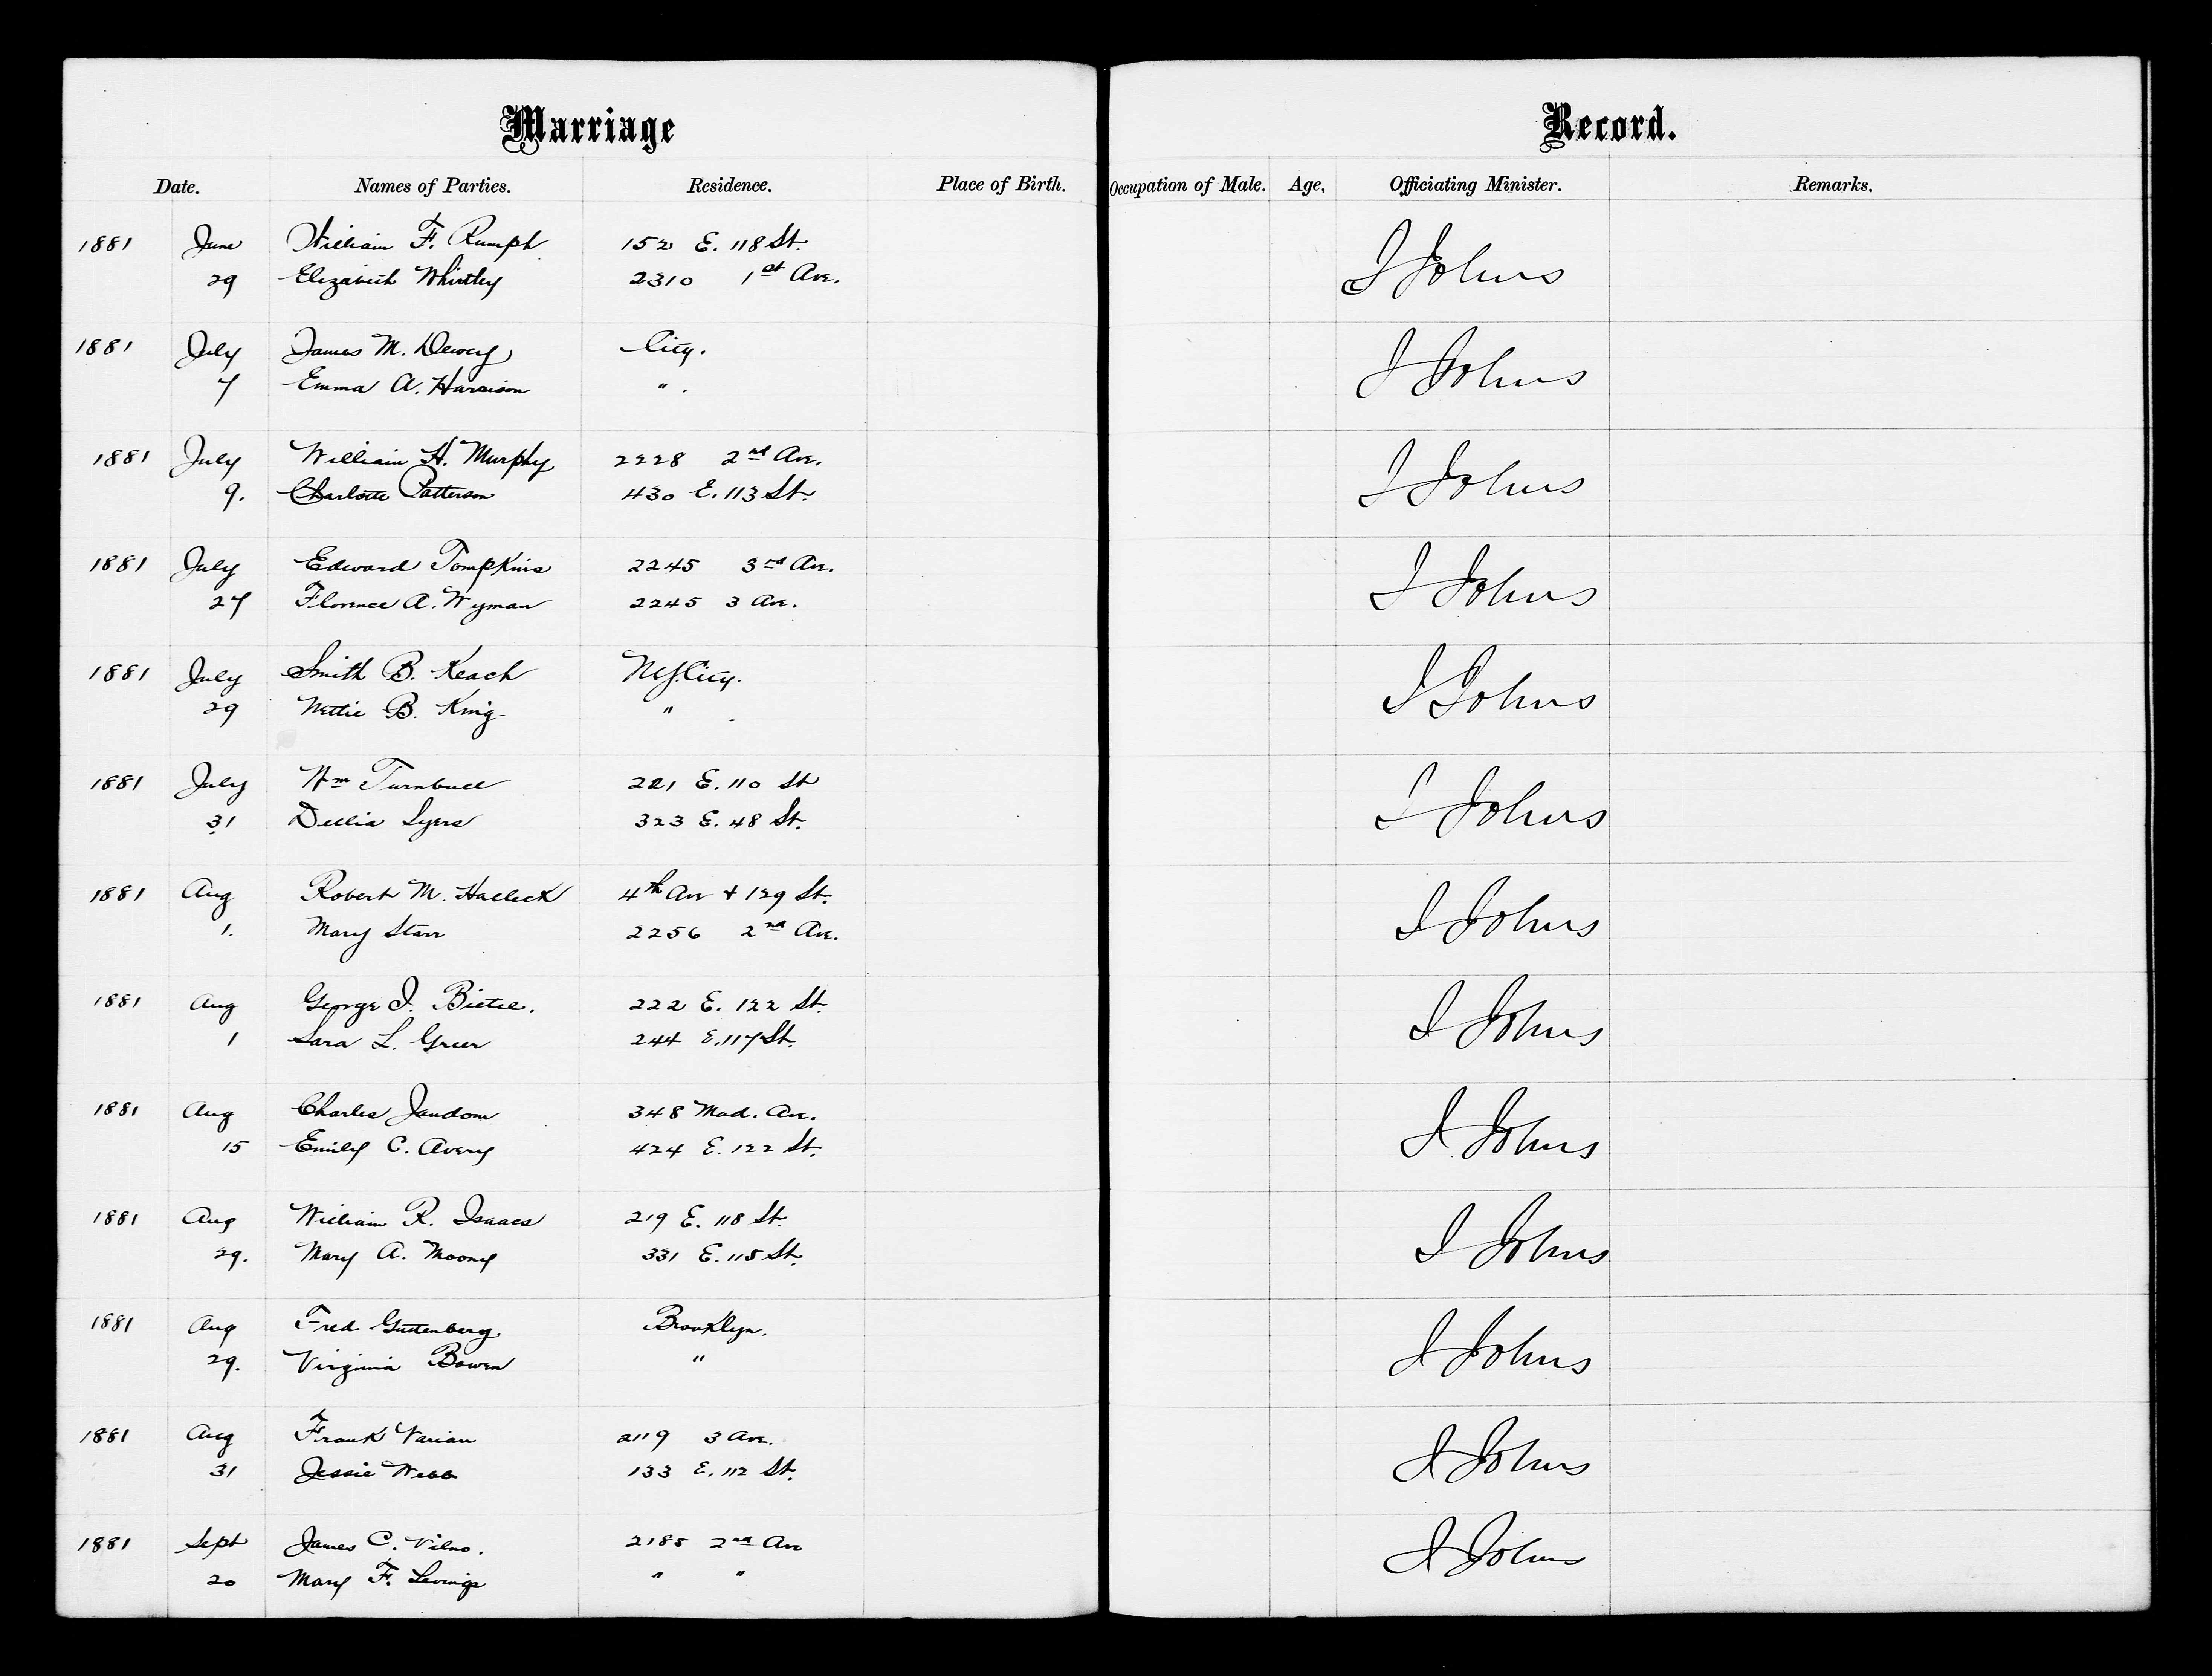 Marriage Record.
Date. Names of Parties. Residence. Place of Birth. Occupation of Male. Age. Officiating Minister. Remarks.
1881 June William F. Rumph 152 E. 118 St. I Johns
29 Elizabeth Whirtley 2310 1st Ave.
1881 July James M. Dewey City. I Johns
7 Emma A. Harrison " .
1881 July William H. Murphy 2228 2nd Ave. I Johns
9. Charlotte Patterson 430 E. 113 St.
1881 July Edward Tompkins 2245 3rd Av. I Johns
27 Florence A. Wyman 2245 3 Av.
1881 July Smith B. Keach N.Y. City. I Johns
29 Nettie B. King "
1881 July Wm Turnbull 221 E. 110 St I Johns
31 Dellia Lyers 323 E. 48 St.
1881 Aug Robert M. Halleck 4th Av + 129 St. I Johns
1. Mary Starr 2256 2nd Av.
1881 Aug George I. Bietel. 222 E. 122 St. I Johns
1 Sara L. Greer 244 E. 117 St.
1881 Aug Charles Jandom 348 Mad. Av. I Johns
15 Emily C. Avery 424 E. 122 St.
1881 Aug William R. Isaacs 219 E. 118 St. I Johns
29. Mary A. Mooney 331 E. 115 St.
1881 Aug Fred Gutenberg Brooklyn. I Johns
29. Virginia Bowen "
1881 Aug Frank Varian 2119 3 Av. I Johns
31 Jessie Webb 133 E. 112 St.
1881 Sept James C. 2185 2nd Av I Johns
20 Mary F. Levings " "